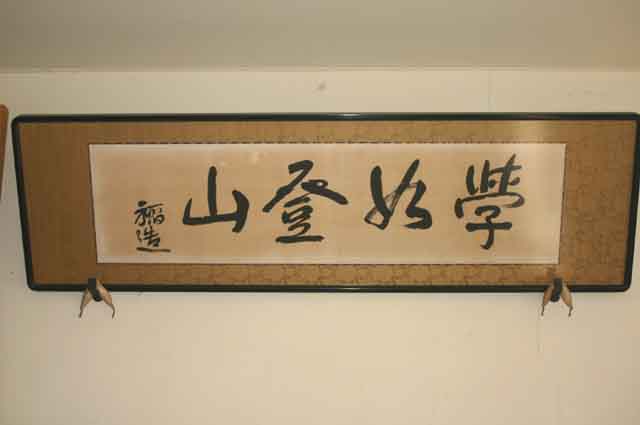 學如登山
稲造